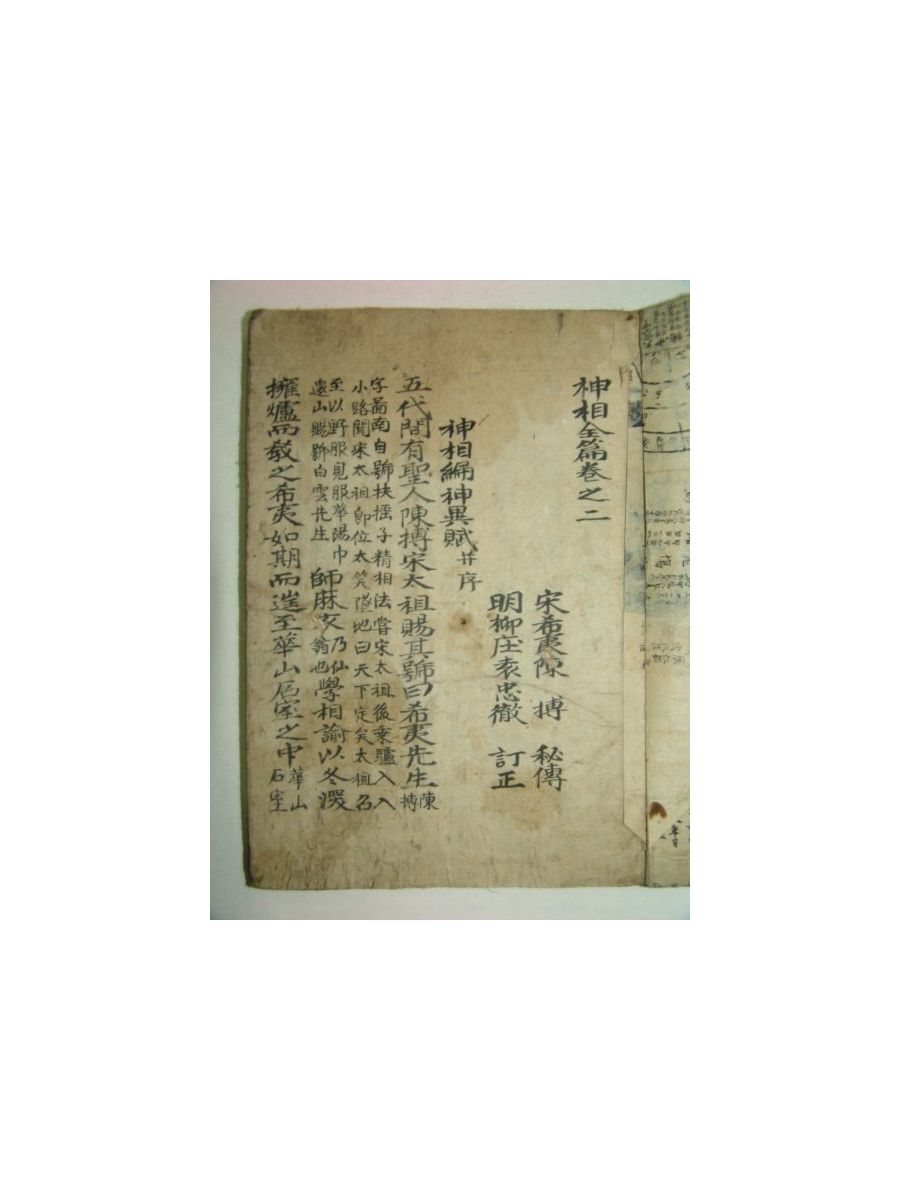 神相全篇卷之二
宋希夷陳 摶 秘傳
明柳庄袁忠徹 訂正
神相編神異賦 幷序
五代間有聖人陳摶宋太祖賜其號曰希夷先生 陳摶
字啚南自號扶搖子精相法嘗宋太祖後乘驢入入
小路聞宋太祖卽位大笑墜地曰天下定矣太祖召
至以野服見服華陽巾
還山賜號白雲先生
師麻衣 乃仙翁也 學相諭以冬深
擁爐而教之希夷如期而進至華山石室之中 華山石室